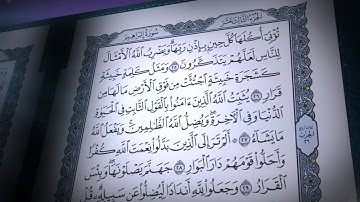 الجزء الثالث عشر
سورة إبراهيم
تُؤْتِي أُكُلَهَا كُلَّ حِينٍ بِإِذْنِ رَبِّهَا وَيَضْرِبُ اللَّهُ الْأَمْثَالَ
لِلنَّاسِ لَعَلَّهُمْ يَتَذَكَّرُونَ ٢٥ وَمَثَلُ كَلِمَةٍ خَبِيثَةٍ
كَشَجَرَةٍ خَبِيثَةٍ اجْتُثَّتْ مِن فَوْقِ الْأَرْضِ مَا لَهَا مِن
قَرَارٍ ٢٦ يُثَبِّتُ اللَّهُ الَّذِينَ ءَامَنُوا بِالْقَوْلِ الثَّابِتِ فِي الْحَيَوٰةِ
الدُّنْيَا وَفِي الْآخِرَةِ وَيُضِلُّ اللَّهُ الظَّٰلِمِينَ وَيَفْعَلُ اللَّهُ
مَا يَشَاءُ ٢٧ أَلَمْ تَرَ إِلَى الَّذِينَ بَدَّلُوا نِعْمَتَ اللَّهِ كُفْرًا
وَأَحَلُّوا قَوْمَهُمْ دَارَ الْبَوَارِ ٢٨ جَهَنَّمَ يَصْلَوْنَهَا وَبِئْسَ
الْقَرَارُ ٢٩ وَجَعَلُوا لِلَّهِ أَندَادًا لِّيُضِلُّوا عَن سَبِيلِهِ قُلْ